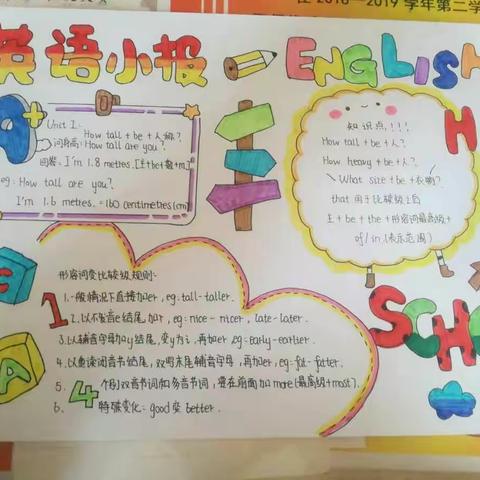 在2018-2019学年第二学
英语小报
ENGLISH
Unit 1:
How tall + be + 人称?
问身高: How tall are you?
回答: I'm 1.8 metres.[主+be+数+m]
eg: How tall are you?
I'm 1.6 metres. = 160 centimetres(cm)
知识点!!!
How tall + be + 人?
How heavy + be + 人?
What size + be + 衣物?
that 用于比较级上自
主 + be + the + 形容词最高级 +
of / in (表示范围)
形容词变比较级规则:
1.一般情况下直接加er, eg: tall-taller.
2.以不发音e结尾加r, eg: nice - nicer, late-later.
3.以辅音字母加y结尾,变y为i,再加er eg: early-earlier.
4.以重读闭音节结尾,双写末尾辅音字母,再加er, eg: fat- fatter.
5. 个别双音节词和多音节词,要在前面加more(最高级+most).
6. 特殊变化: good变 better.
1
4
A
SCHO